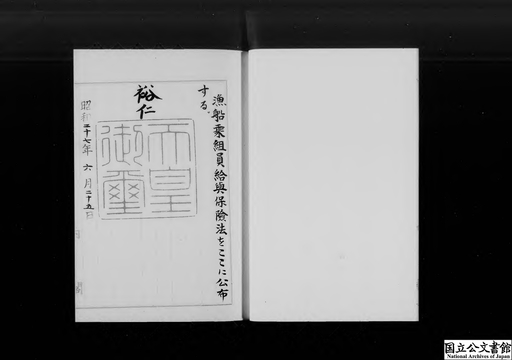 漁船乗組員給与保険法をここに公布
する。
裕仁
天皇
御璽
昭和二十七年六月二十五日
国立公文書館
National Archives of Japan